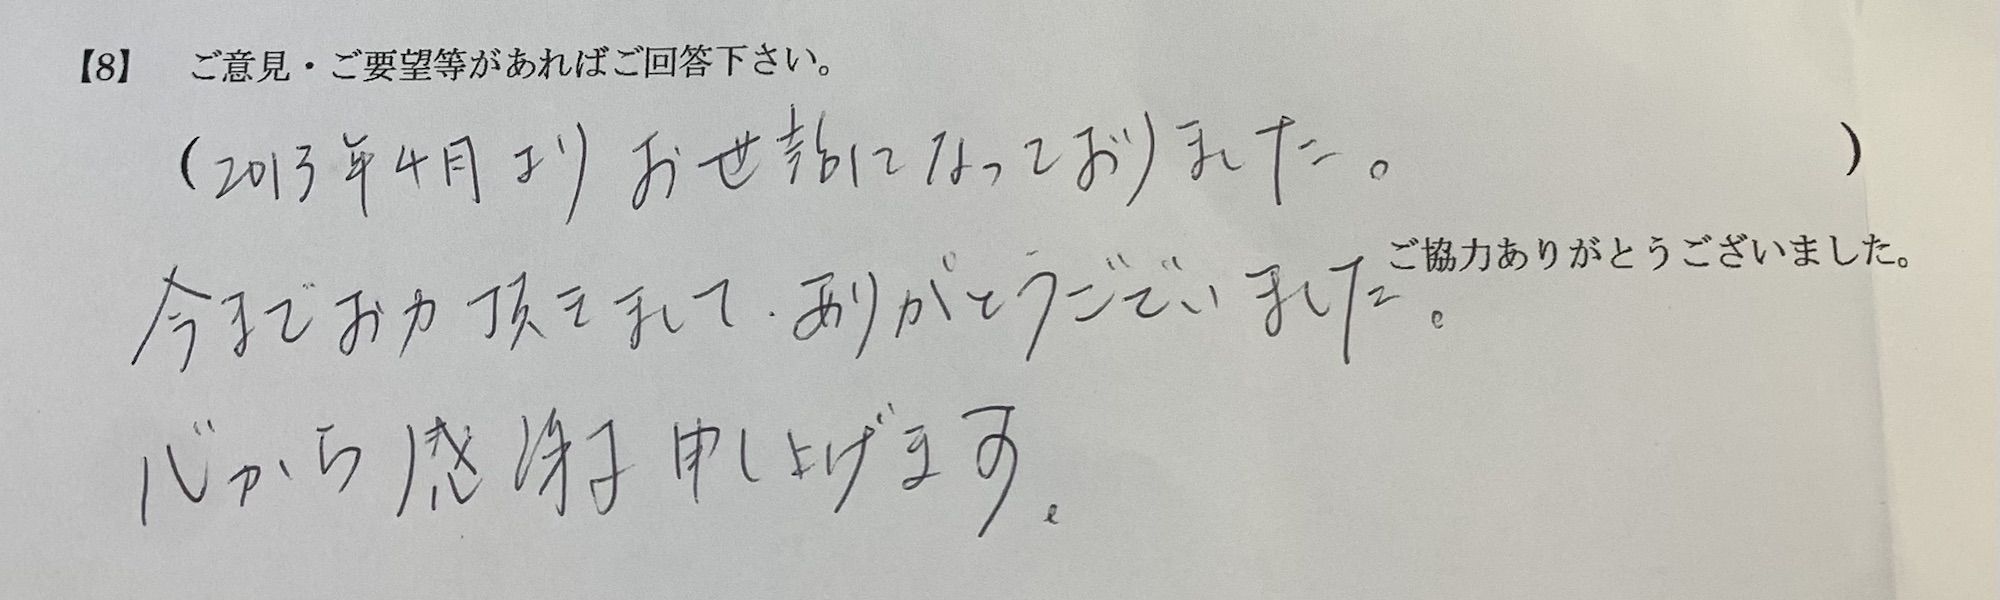 【8】 ご意見・ご要望等があればご回答下さい。
(2013年4月よりお世話になっておりました。)
ご協力ありがとうございました。
今までお力頂きまして、ありがとうございました。
心から感謝申し上げます。